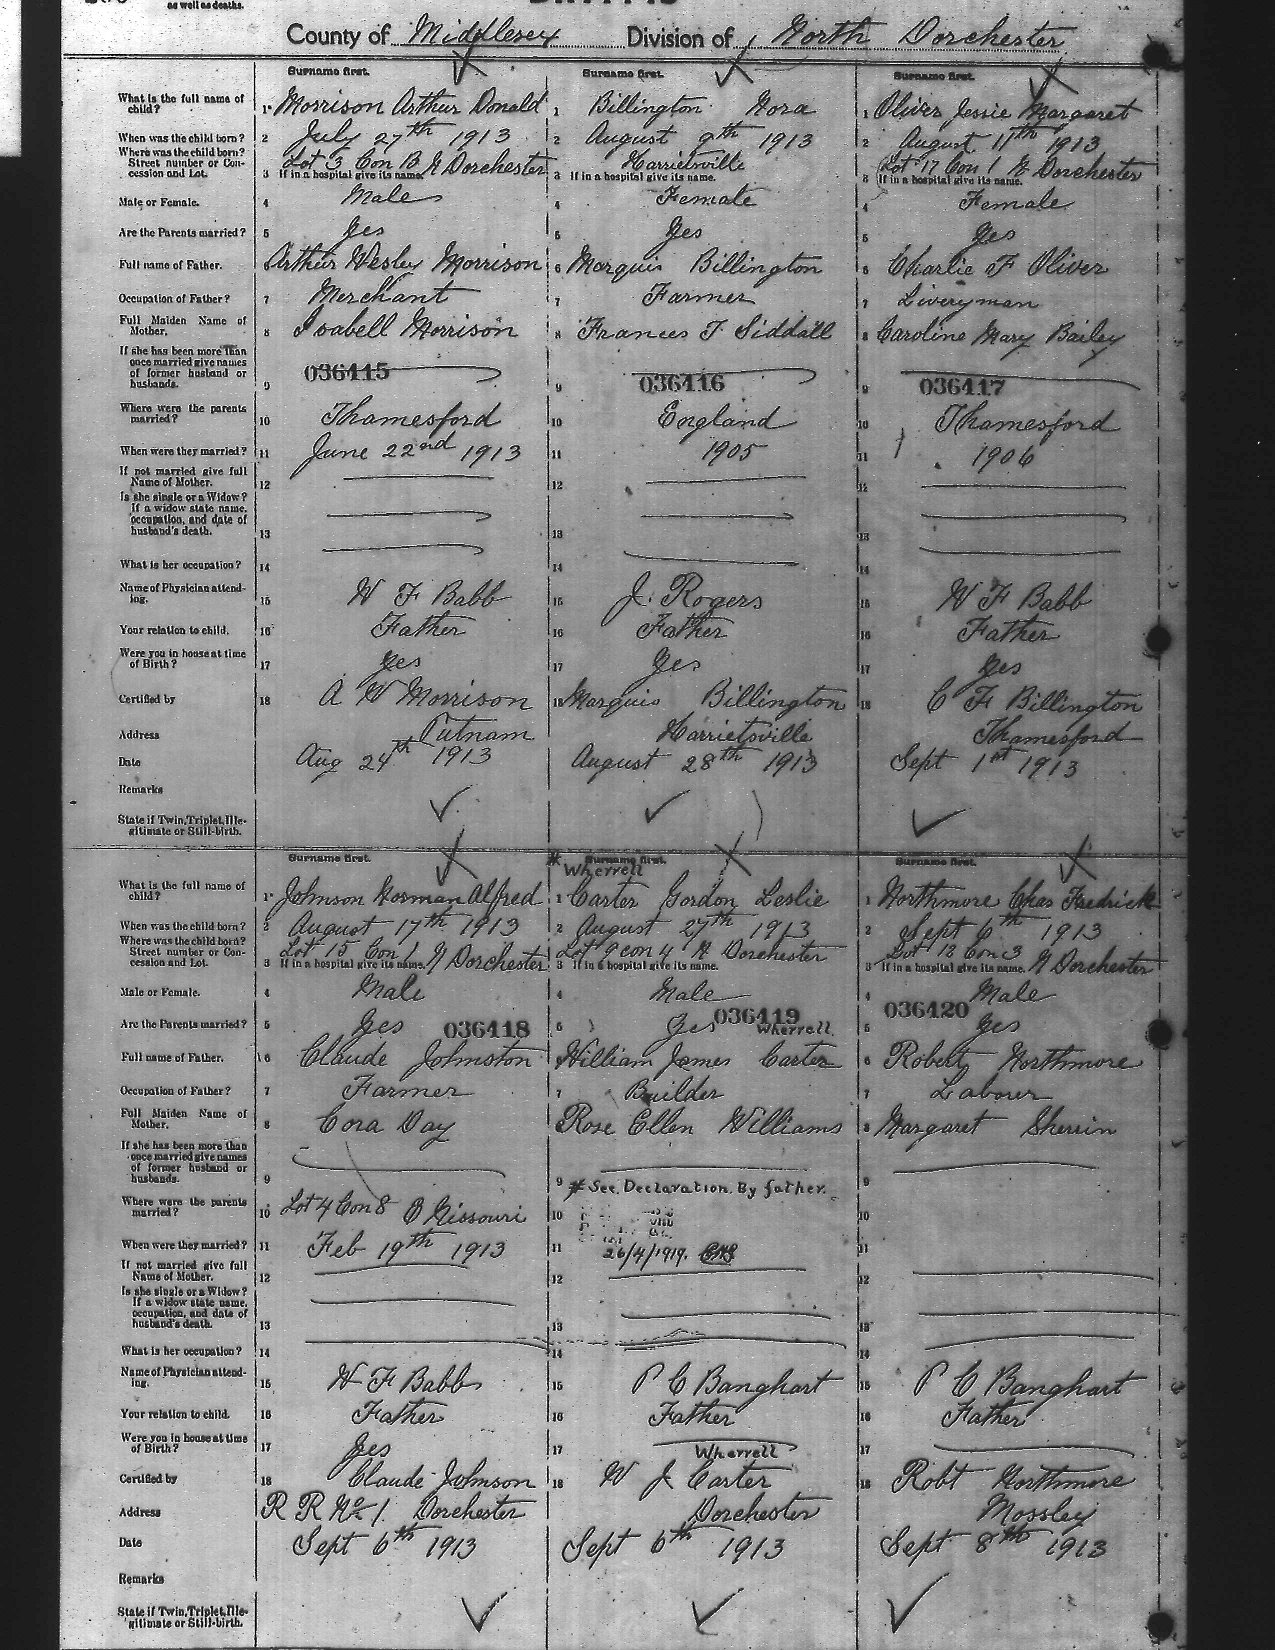 as well as deaths.
County of Middlesex Division of North Dorchester
Surname first. Surname first. Surname first.
What is the full name of child? 1 Morrison Arthur Donald 1 Billington Nora 1 Oliver Jessie Margaret
When was the child born? 2 July 27th 1913 2 August 9th 1913 2 August 11th 1913
Where was the child born? Street number or Concession and Lot. Lot 3 Con B N Dorchester Harrietsville Lot 17 Con 1 N Dorchester
3 If in a hospital give its name. 3 If in a hospital give its name. 3 If in a hospital give its name.
Male or Female. 4 Male 4 Female 4 Female
Are the Parents married? 5 Yes 5 Yes 5 Yes
Full name of Father. 6 Arthur Wesley Morrison 6 Marquis Billington 6 Charlie F Oliver
Occupation of Father? 7 Merchant 7 Farmer 7 Liveryman
Full Maiden Name of Mother. 8 Isabell Morrison 8 Frances T. Siddall 8 Caroline Mary Bailey
If she has been more than once married give names of former husband or husbands. 9 036415 9 036416 9 036417
Where were the parents married? 10 Thamesford 10 England 10 Thamesford
When were they married? 11 June 22nd 1913 11 1905 11 1906
If not married give full Name of Mother. 12 12 12
Is she single or a Widow? If a widow state name, occupation, and date of husband's death. 13 13 13
What is her occupation? 14 14 14
Name of Physician attending. 15 W F Babb 15 J. Rogers 15 W F Babb
Your relation to child. 16 Father 16 Father 16 Father
Were you in house at time of Birth? 17 Yes 17 Yes 17 Yes
Certified by 18 A W Morrison 18 Marquis Billington 18 C F Billington
Address Putnam Harrietsville Thamesford
Date Aug 24th 1913 August 28th 1913 Sept 1st 1913
Remarks
State if Twin, Triplet, Illegitimate or Still-birth.
Surname first. * Surname first. Surname first.
Wherrell
What is the full name of child? 1 Johnson Norman Alfred 1 Carter Gordon Leslie 1 Northmore Chas Fredrick
When was the child born? 2 August 17th 1913 2 August 27th 1913 2 Sept 6th 1913
Where was the child born? Street number or Concession and Lot. Lot 15 Con 1 N Dorchester Lot 9 con 4 N Dorchester Lot 13 Con 3 N Dorchester
3 If in a hospital give its name. 3 If in a hospital give its name. 3 If in a hospital give its name.
Male or Female. 4 Male 4 Male 4 Male
Are the Parents married? 5 Yes 036418 5 Yes 036419 5 036420 Yes
Wherrell
Full name of Father. 6 Claude Johnston William James Carter 6 Robert Northmore
Occupation of Father? 7 Farmer 7 Builder 7 Laborer
Full Maiden Name of Mother. 8 Cora Day Rose Ellen Williams 8 Margaret Sherrin
If she has been more than once married give names of former husband or husbands. 9 9 * See Declaration By father. 9
Where were the parents married? 10 Lot 4 Con 8 E Nissouri 10 10
When were they married? 11 Feb 19th 1913 11 26/4/1919. 11
If not married give full Name of Mother. 12 12 12
Is she single or a Widow? If a widow state name, occupation, and date of husband's death. 13 13 13
What is her occupation? 14 14 14
Name of Physician attending. 15 W F Babb 15 P C Banghart 15 P C Banghart
Your relation to child. 16 Father 16 Father 16 Father
Were you in house at time of Birth? 17 Yes 17 17
Wherrell
Certified by 18 Claude Johnson 18 W J Carter 18 Robt Northmore
Address R R No 1. Dorchester Dorchester Mossley
Date Sept 6th 1913 Sept 6th 1913 Sept 8th 1913
Remarks
State if Twin, Triplet, Illegitimate or Still-birth.